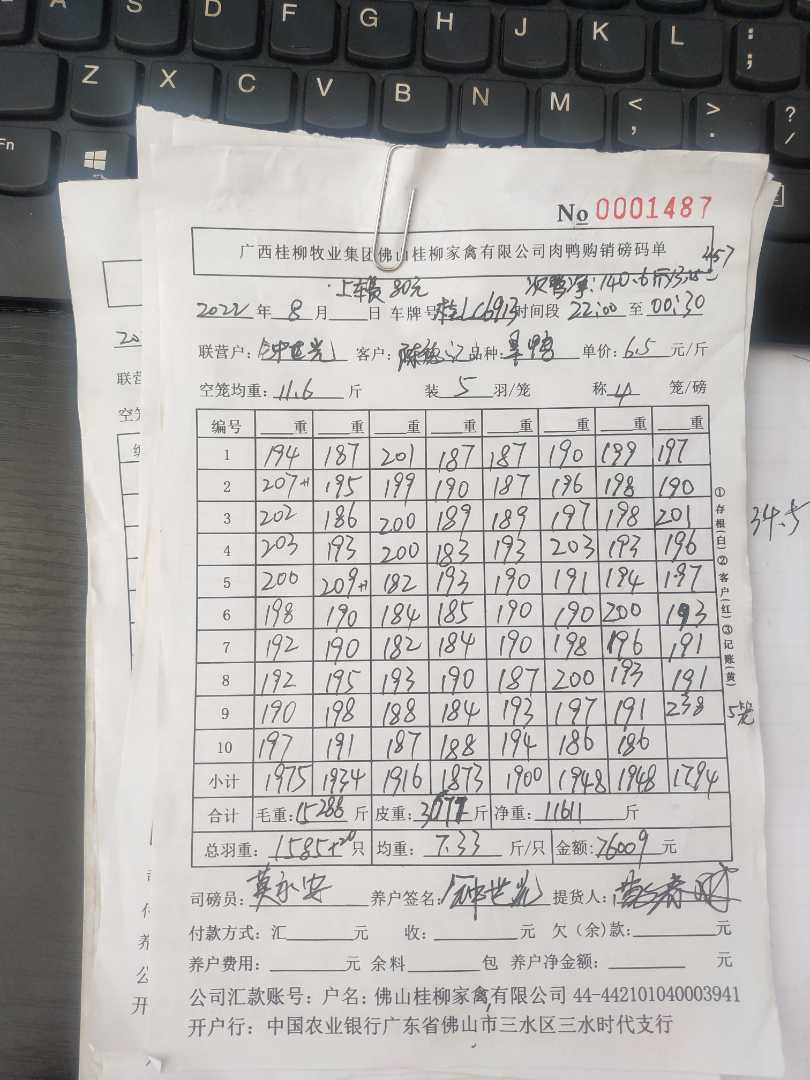 A S D F G H J K L : ;
Z X C V B N M < , > . ? /
Fn
No 0001487
广西桂柳牧业集团佛山桂柳家禽有限公司肉鸭购销磅码单
457
上车费80元
140.6斤
2022年8月 日 车牌号 桂LC6913 时间段 22:00 至 00:30
联营户: 钟世光 客户: 品种: 单价: 6.5 元/斤
空笼均重: 11.6 斤 装 5 羽/笼 称 4 笼/磅
编号 重 重 重 重 重 重 重 重
1 194 187 201 187 187 190 199 197
2 207+1 195 199 190 187 196 198 190
3 202 186 200 189 189 197 198 201
4 203 193 200 183 193 203 193 196
5 200 209+1 182 193 190 191 194 197
6 198 190 184 185 190 190 200 193
7 192 190 182 184 190 198 196 191
8 192 195 193 190 187 200 193 191
9 190 198 188 184 193 197 191 238 5笼
10 197 191 187 188 194 186 186
小计 1975 1934 1916 1873 1900 1948 1948 1794
合计 毛重: 15288 斤 皮重: 3677 斤 净重: 11611 斤
总羽重: 1585+20 只 均重: 7.33 斤/只 金额: 76009 元
司磅员: 莫永安 养户签名: 钟世光 提货人:
付款方式: 汇 元 收: 元 欠(余)款: 元
养户费用: 元 余料 包 养户净金额: 元
公司汇款账号: 户名: 佛山桂柳家禽有限公司 44-442101040003941
开户行: 中国农业银行广东省佛山市三水区三水时代支行
①存根(白)②客户(红)③记账(黄)
34.5
联营
空笼
养
公
开